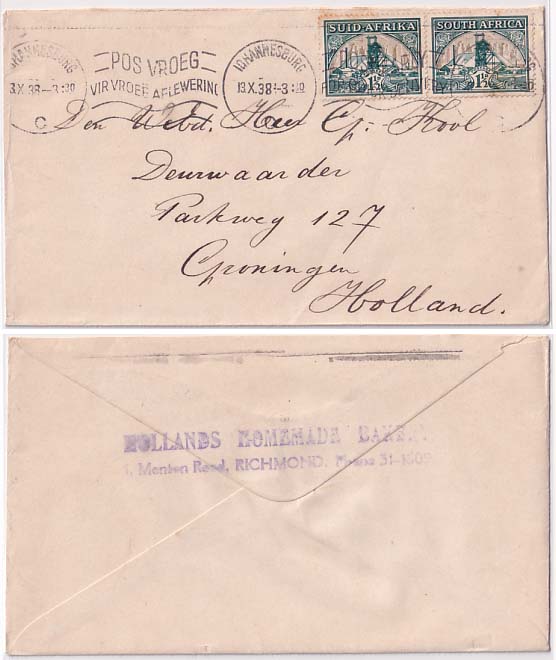 SUID-AFRIKA SOUTH AFRICA
JOHANNESBURG POS VROEG JOHANNESBURG
13 X 38 — 3 30 VIR VROEË AFLEWERING 13 X 38 — 3 30
C
1½ 1½
Den Weled. Heer G. Kool
Deurwaarder
Parkweg 127
Groningen
Holland.
HOLLANDS HOMEMADE BAKERY
Menton Road, RICHMOND. Phone 31-1609